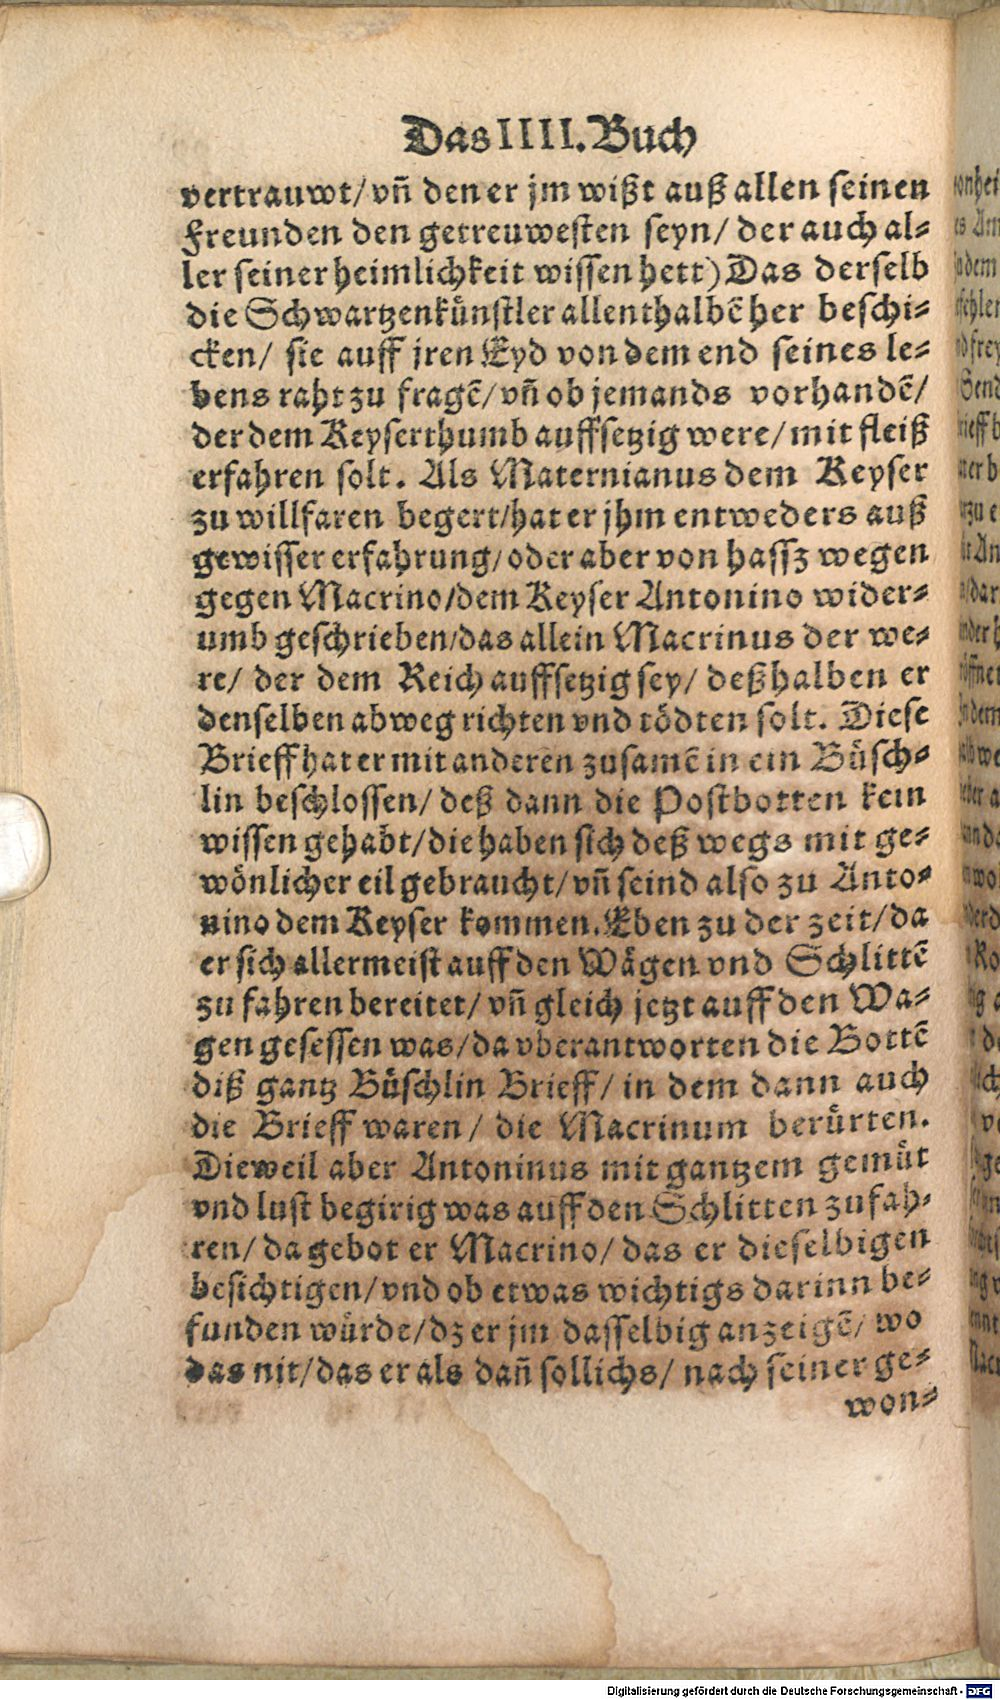 Das IIII. Buch
vertrauwt/ vñ den er jm wißt auß allen seinen
Freunden den getreuwesten seyn/ der auch al-
ler seiner heimlichkeit wissen hett) Das derselb
die Schwartzenkünstler allenthalbẽ her beschi-
cken/ sie auff jren Eyd von dem end seines le-
bens raht zu fragẽ/ vñ ob jemands vorhandẽ/
der dem Keyserthumb auffsetzig were/ mit fleiß
erfahren solt. Als Maternianus dem Keyser
zu willfaren begert/ hat er jhm entweders auß
gewisser erfahrung/ oder aber von hassz wegen
gegen Macrino/ dem Keyser Antonino wider-
umb geschrieben/ das allein Macrinus der we-
re/ der dem Reich auffsetzig sey/ deßhalben er
denselben abweg richten vnd tödten solt. Diese
Brieff hat er mit anderen zusamẽ in ein Büsch-
lin beschlossen/ deß dann die Postbotten kein
wissen gehabt/ die haben sich deß wegs mit ge-
wönlicher eil gebraucht/ vñ seind also zu Anto-
nino dem Keyser kommen. Eben zu der zeit/ da
er sich allermeist auff den Wägen vnd Schlittẽ
zu fahren bereitet/ vñ gleich jetzt auff den Wa-
gen gesessen was/ da vberantworten die Bottẽ
diß gantz Büschlin Brieff/ in dem dann auch
die Brieff waren/ die Macrinum berürten.
Dieweil aber Antoninus mit gantzem gemüt
vnd lust begirig was auff den Schlitten zufah-
ren/ da gebot er Macrino/ das er dieselbigen
besichtigen/ vnd ob etwas wichtigs darinn be-
funden würde/ dz er jm dasselbig anzeigẽ/ wo
das nit/ das er als dañ sollichs/ nach seiner ge-
won-
Digitalisierung gefördert durch die Deutsche Forschungsgemeinschaft - DFG